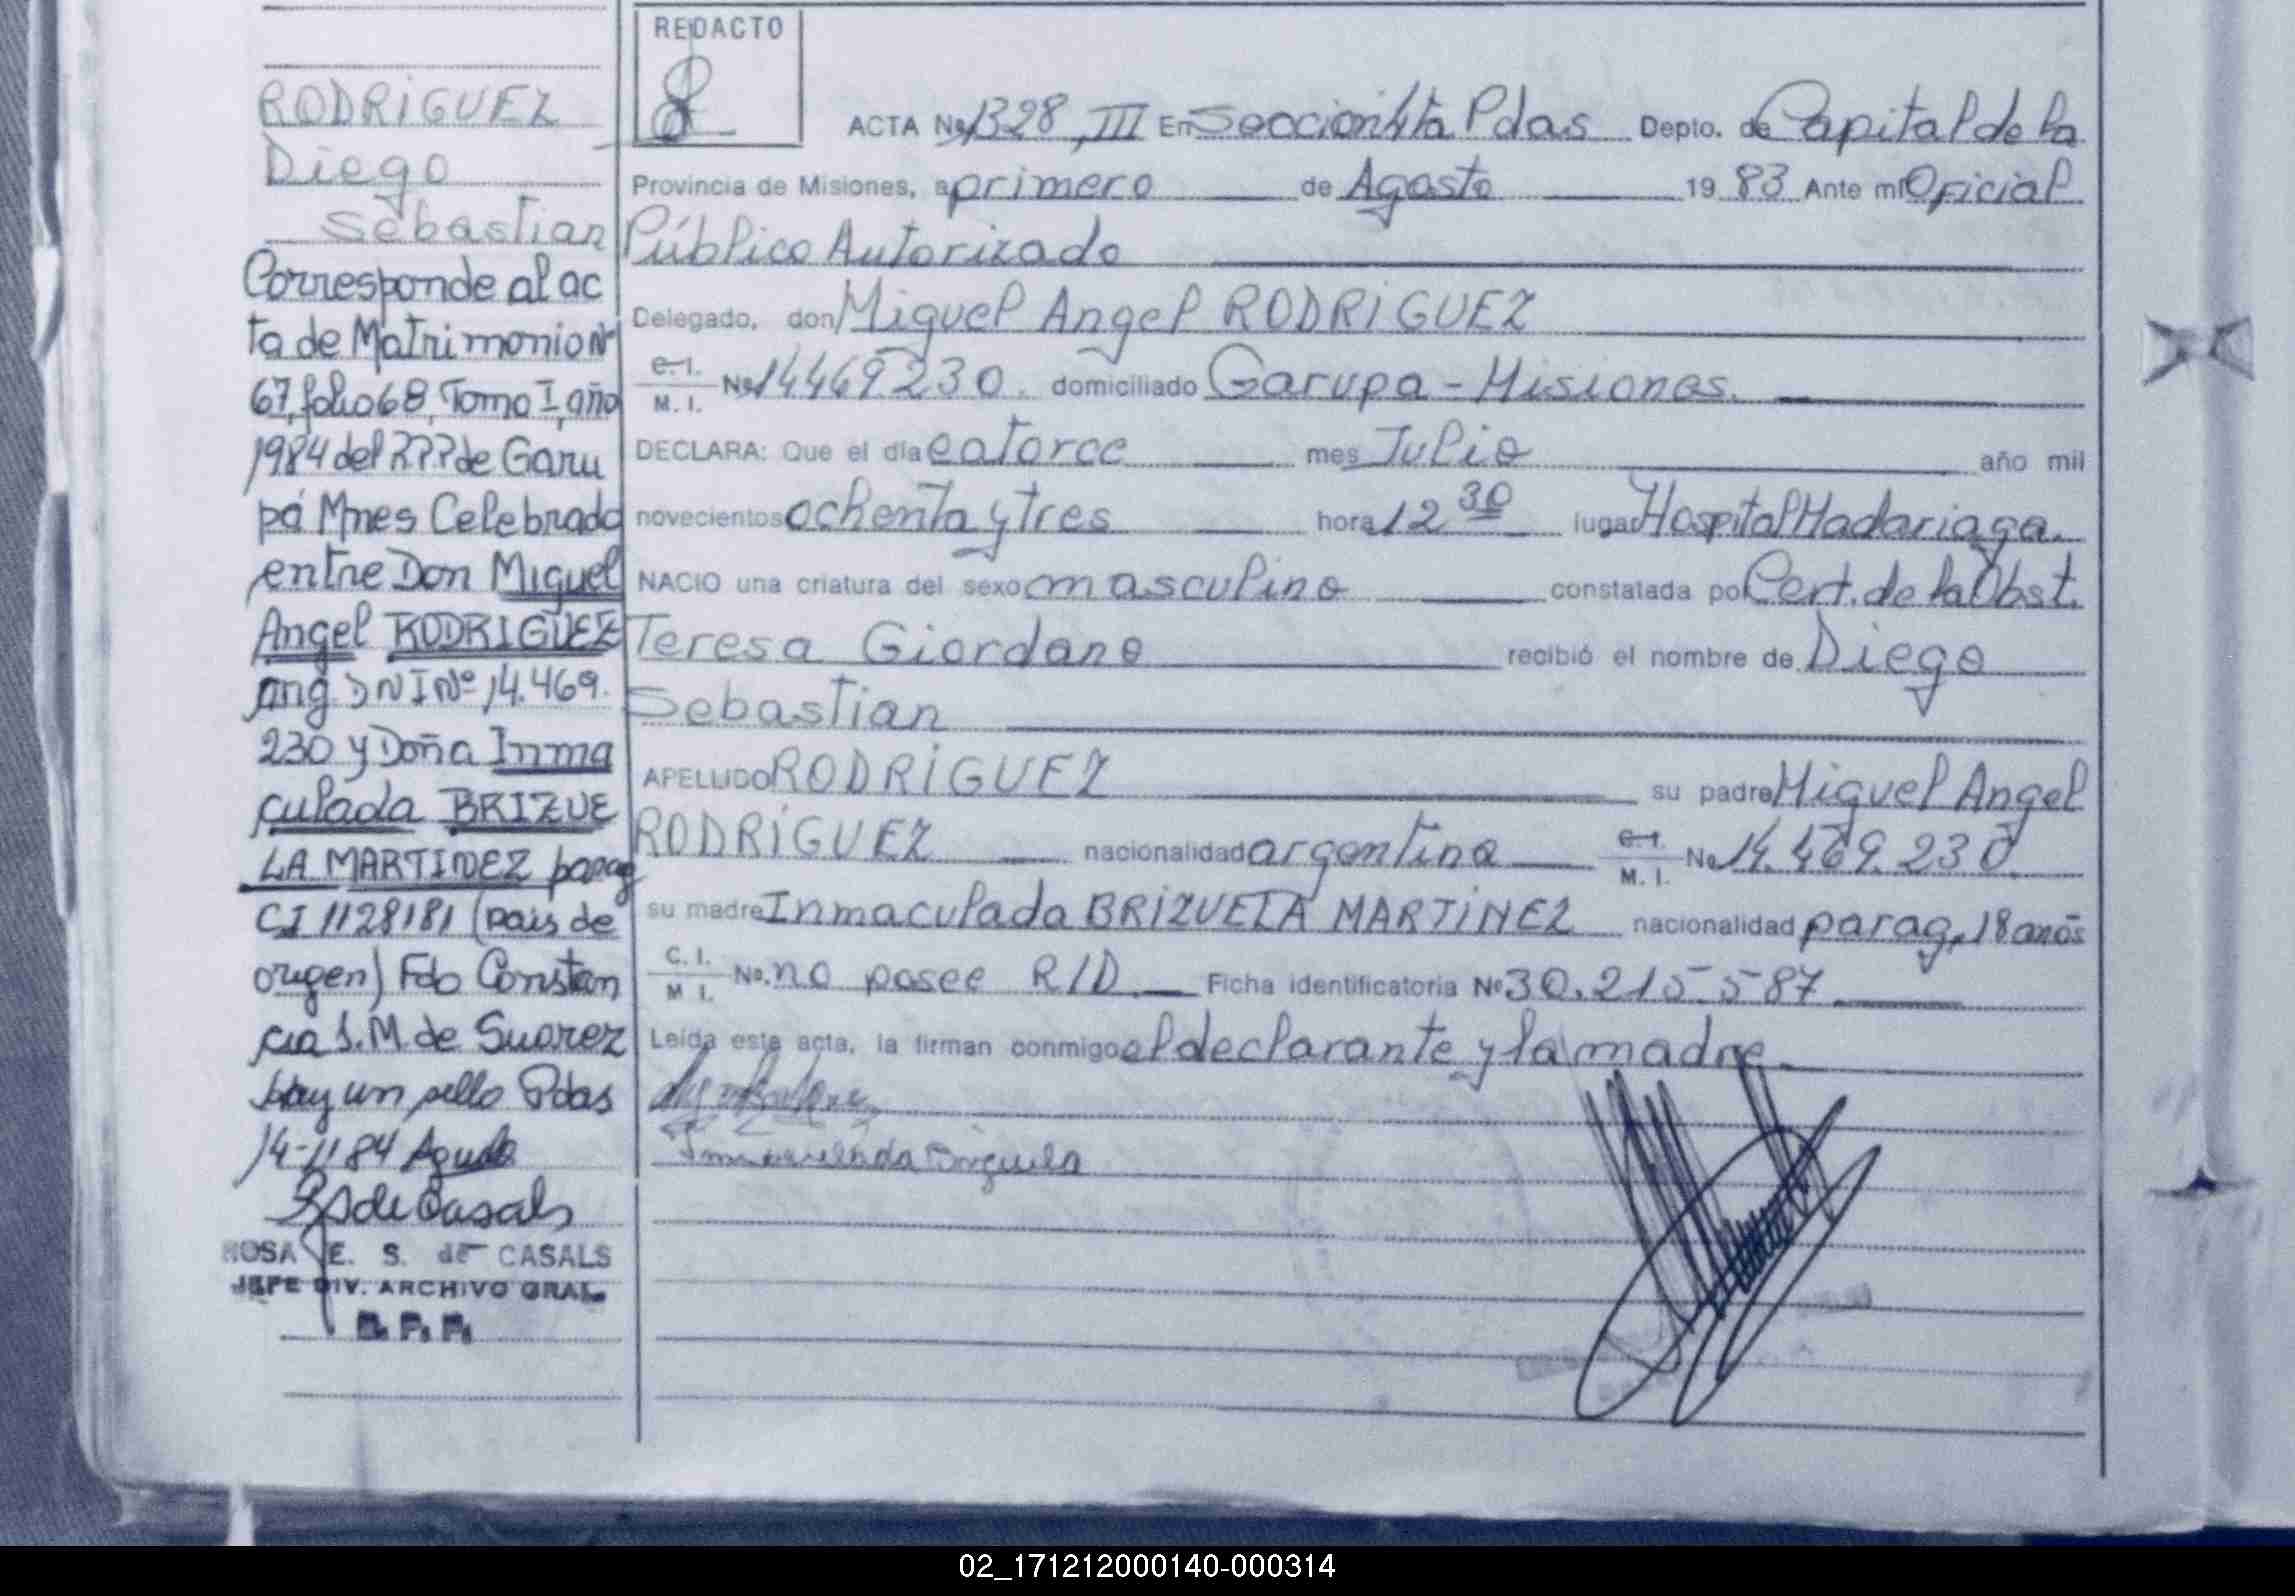 RODRIGUEZ
Diego
Sebastian
Corresponde al ac
ta de Matrimonio Nº
67, folio 68, Tomo I, año
1984 del RPP de Garu
pá Mnes Celebrado
entre Don Miguel
Angel RODRIGUEZ
arg. DNI Nº 14.469.
230 y Doña Inma
culada BRIZUE
LA MARTINEZ parag
CI 1128181 (pais de
origen) Fdo Constan
cia S. M. de Suarez
Hay un sello Pdas
14-11 84
ROSA E. S. de CASALS
JEFE DIV. ARCHIVO GRAL.
R. P. P.
REDACTO
ACTA Nº 1328, III En Sección 4ta Pdas Depto. de Capital de la
Provincia de Misiones, a primero de Agosto 19 83 Ante mí Oficial
Público Autorizado
Delegado, don Miguel Angel RODRIGUEZ
C. I. / M. I. Nº 14469.230. domiciliado Garupa - Misiones.
DECLARA: Que el día catorce mes Julio año mil
novecientos ochenta y tres hora 12 30 lugar Hospital Madariaga.
NACIO una criatura del sexo masculino constatada por Cert. de la Obst.
Teresa Giordano recibió el nombre de Diego
Sebastian
APELLIDO RODRIGUEZ su padre Miguel Angel
RODRIGUEZ nacionalidad argentina C. I. / M. I. Nº 14.469.230.
su madre Inmaculada BRIZUELA MARTINEZ nacionalidad parag, 18 años
C. I. / M. I. Nº. no posee R/D. Ficha identificatoria Nº 30.215.587
Leída esta acta, la firman conmigo el declarante y la madre
Inmaculada
02_171212000140-000314